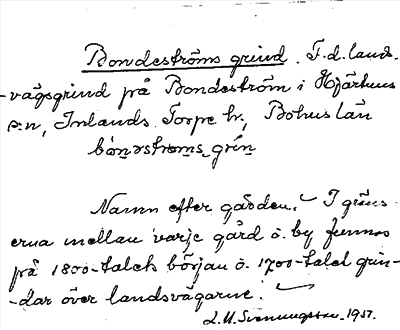 Bondeströms grind. F.d. lands-
-vägsgrind på Bondeström i Hjärtums
s:n, Inlands Torpe hr, Bohuslän
bo̱nəstrøms grín
Namn efter gården. I gräns-
erna mellan varje gård o. by funnos
på 1800-talets början o. 1700-talet grin-
-dar över landsvägarne.
1957.